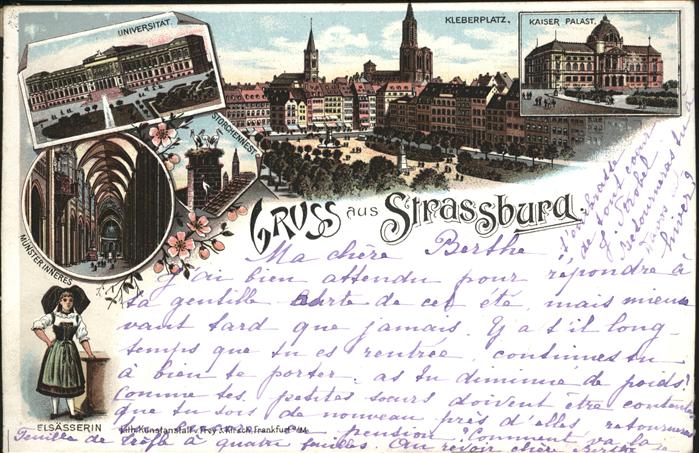 UNIVERSITAT.
KLEBERPLATZ.
KAISER PALAST.
STORCHENNEST
MÜNSTER INNERES
GRUSS aus Strassburg.
ELSÄSSERIN
Lith. Kunstanstalt v. Frey & Kirsch, Frankfurt a/M
Ma chère Berthe
J'ai bien attendu pour répondre à
ta gentille carte de cet été, mais mieux
vaut tard que jamais. Y a t'il long-
temps que tu es rentrée, continues tu
à bien te porter. as tu diminué de poids?
Comme tes petites sœurs doivent être contentes
que tu sois de nouveau près d'elles, retourneras
pension? Comment va la
feuille de trèfle à quatre feuilles. Au revoir chère Berthe
t'embrasse
de tout cœur
J.
retourneras tu
hiver?